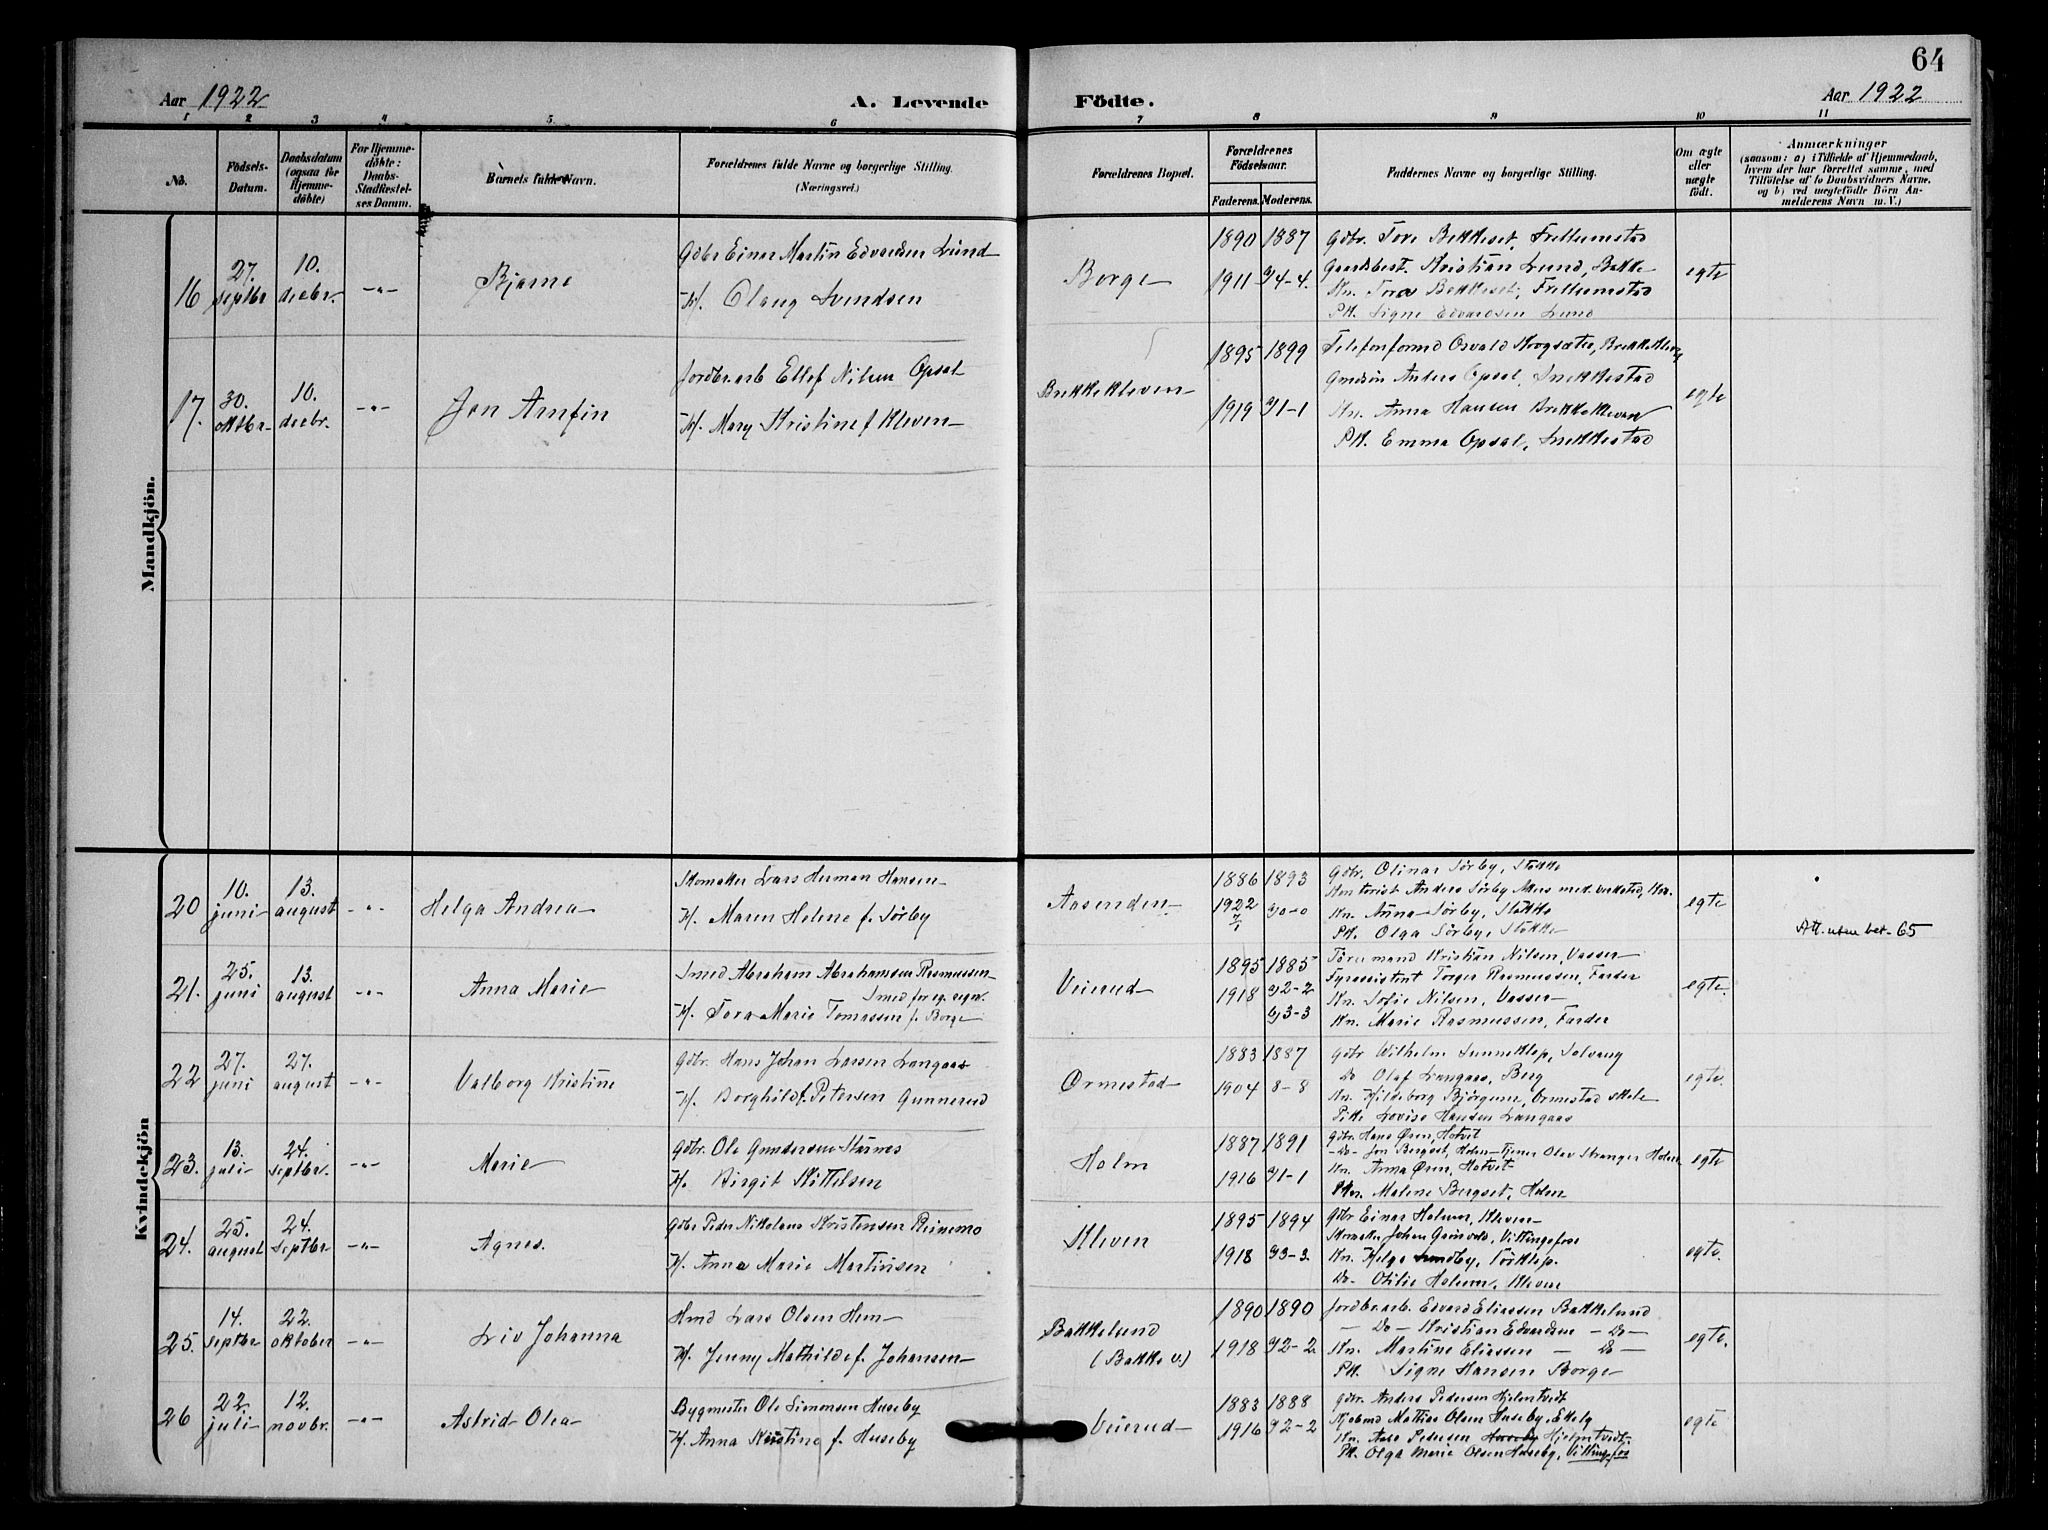 64
Aar 1922
A. Levende
Födte.
Aar 1922
1 2 3 4 5. 6 7 8 9 10 11
No.
Födsels-
Datum.
Daabsdatum
(ogsaa for
Hjemme-
döbte)
For Hjemme-
döbte:
Daabs-
Stadfæstel-
ses Datum.
Barnets fulde Navn.
Forældrenes fulde Navne og borgerlige Stilling.
(Næringsvei.)
Forældrenes Bopæl.
Forældrenes
Födselsaar.
Faderens. Moderens.
Faddernes Navne og borgerlige Stilling.
Om ægte
eller
uægte
født.
Anmærkninger
(saasom: a) i Tilfælde af Hjemmedaab,
hvem der har forrettet samme, med
Tilføielse af to Daabsvidners Navne,
og b) ved uægtefødte Børn An-
melderens Navn m. V.)
Mandkjön.
16
27.
septbr
10.
decbr.
-"-
Bjarne
Gdbr Einar Martin Edvardsen Lund
H. Olaug Svendsen
Borge
1890 1887
1911 4-4.
Gdbr. Tore Bekkeset,
Gaardbest. Kristian Lund, Bakke
Kn. Tora Bekkeset,
PK. Signe Edvardsen Lund
egte
17.
30.
oktbr.
10.
decbr.
-"-
Jon Arnfin
Jordbr.arb Ellef Nilsen Opsal
H. Mary Kristine f Kleven
Brekkekleven
1895 1899
1919 1-1
Telefonformd Osvald Skogsæter, Brekkekleven
Gmdsøn Anders Opsal, Snekkestad
Kn. Anna Hansen Brekkekleven
PK. Emma Opsal, Snekkestad
egte
Kvindekjön
20
10.
juni
13.
august
-"-
Helga Andrea
Skomaker Lars Herman Hansen
H. Maren Helene f. Sørby
Aasenden
1886 1893
1922 0-0
7/1
Gdbr. Olinar Sørby, Stokke
Kontorist Anders Sørby Akers mek. verksted, Kra.
Kn. Anna Sørby, Stokke
PK. Olga Sørby, Stokke
egte
Att. uten bet. 65
21.
25.
juni
13.
august
-"-
Anna Marie
Smed Abraham Abrahamsen Rasmussen
Smed for eg. regn.
H. Tora Marie Tomassen f. Borge
Veierud
1895 1885
1918 2-2
3-3
Tømmermand Kristian Nilsen, Vasser
Fyrassistent Torger Rasmussen, Færder
Kn. Sofie Nilsen, Vasser
Kn. Marie Rasmussen, Færder
egte.
22
27.
juni
27.
august
-"-
Valborg Kristine
Gdbr. Hans Johan Larsen Langaas
H. Borghild f. Petersen Gunnerud
Ørmestad
1883 1887
1904 8-8
Gdbr Wilhelm Sunneklep, Solvang
Do Olaf Langaas, Berg
Kn. Hildeborg Bjørgum, Ormestad skole
Pike Lovise Hansen Langaas
egte.
23.
13.
juli
24.
septbr.
-"-
Marie
Gdbr. Ole Gundersen Stårnes
H. Birgit Kittelsen
Holm
1887 1891
1916 1-1
Gdbr. Hans Øren, Hotvit
-Do- Jon Bergset, Holm - Tjener Olav Stranger Holm
Kn. Anna Øren, Hotvit
PKn. Malene Bergset, Holm
egte
24.
25.
august
24.
septbr
-"-
Agnes.
Gdbr Peder Nikolaus Kristensen Reinemo
H. Anna Marie Martinsen
Kleven
1895 1894
1918 3-3.
Gdbr Einar Holmen, Kleven
Skomaker Johan Grinvold, Vittingsfoss
Kn. Helga Sundby, Torklep.
Do- Otilie Holmen, Kleven
egte.
25.
14.
septbr
22.
oktober
-"-
Liv Johanna
Hmd Lars Olsen Hem
H. Jenny Mathilde f. Johansen
Bakkelund
(Bakke v.)
1890 1890
1918 2-2.
Jordbr.arb. Edvard Eliassen Bakkelund
- Do - Kristian Edvardsen - Do -
Kn. Martine Eliassen - Do -
PK. Signe Hansen Borge
egte.
26
22.
juli
12.
novbr.
-"-
Astrid Olea
Bygmester Ole Simonsen Huseby
H. Anna Kristine f. Huseby
Veierud
1883 1888
1916 2-2
Gdbr. Anders Pedersen Hjelmtvedt
Mattias Olsen Huseby,
Kn. Aase Pedersen Huseby Hjelmtvedt
PK. Olga Marie Olsen Huseby, Vittingsfos
egte